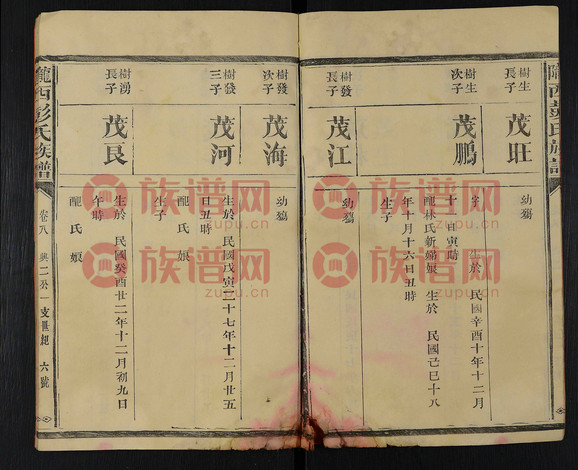 隴西彭氏族譜
樹生長子
茂旺
幼殤
樹生次子
茂鵬
字 生於 民國辛酉十年十二月
十 日寅時
配林氏新婦娘 生於 民國己巳十八
年十月十六日丑時
生子
樹發長子
茂江
幼殤
樹發次子
茂海
幼殤
樹發三子
茂河
生於 民國戊寅二十七年十二月廿五
日丑時
配 氏 娘
生子
樹湧長子
茂艮
生於 民國癸酉廿二年十二月初九日
午時
配 氏 娘
隴西彭氏族譜
卷八
興二公一支世紀
六號
族谱网
zupu.cn
族谱网
zupu.cn
族谱网
zupu.cn
族谱网
zupu.cn